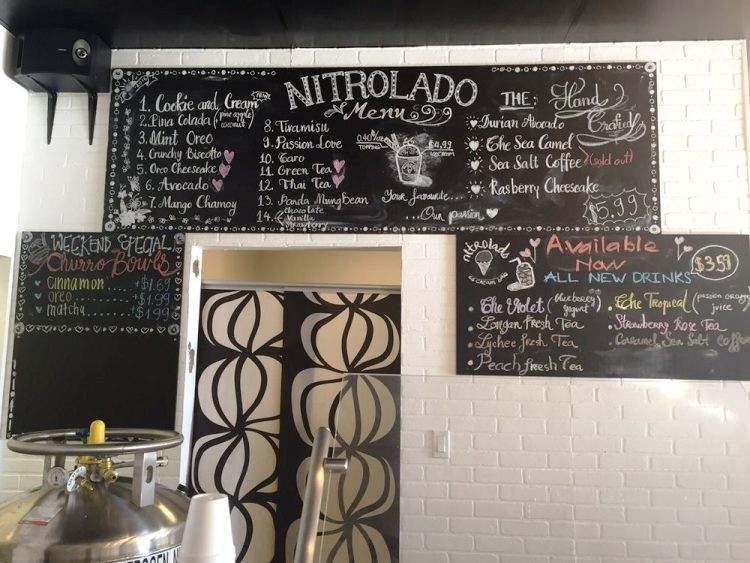 NITROLADO
Menu
1. Cookie and Cream
2. Pina Colada (pine apple coconut)
3. Mint Oreo
4. Crunchy Biscotto
5. Oreo Cheesecake
6. Avocado
7. Mango Chamoy
8. Tiramisu
9. Passion Love
10. Taro
11. Green Tea
12. Thai Tea
13. Panda Mung Bean
14. chocolate
Vanilla
Strawberry
TOPPING
$4.99
Your favourite...
...Our passion
THE: Hand Crafted
Durian Avocado
The Sea Camel
Sea Salt Coffee (sold out)
Rasberry Cheesecake
$5.99
WEEKEND SPECIAL
Churro Bowls
Cinnamon +$1.69
oreo +$1.99
matcha +$1.99
nitrolado
ICE CREAM
Available
Now
ALL NEW DRINKS
$3.59
The Violet (blueberry yogurt)
Longan Fresh Tea
Lychee Fresh Tea
Peach Fresh Tea
The Tropical (passion orange juice)
Strawberry Rose Tea
Caramel Sea Salt Coffee